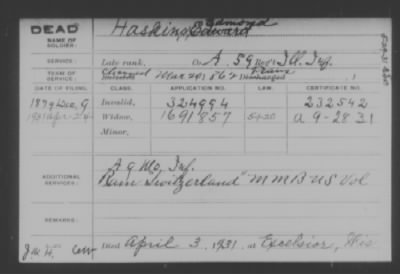 DEAD
NAME OF SOLDIER:
Haskins, Edmond
or Edward
SERVICE:
Late rank, Co. A, 59 Reg't Ill. Inf.
TERM OF SERVICE:
Enrolled Discharged
DATE OF FILING. CLASS. APPLICATION NO. LAW. CERTIFICATE NO.
1879 Dec. 9 Invalid, 324994 232542
1931 Apr. 24 Widow, 1691857 A 9-28-31
Minor,
ADDITIONAL SERVICES:
A 9 Mo. Inf.
Ram Switzerland" M M B U S Vol
REMARKS:
Died April 3, 1931, at Excelsior, Wis.